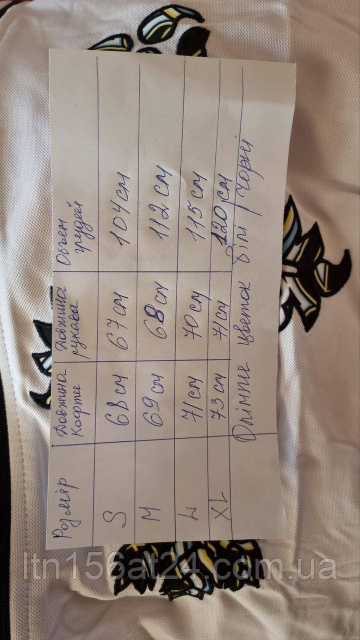 Розмір Довжина Кофти Довжина рукава Объем грудей
S 68 см 67 см 104 см
M 69 см 68 см 112 см
L 71 см 70 см 115 см
XL 73 см 71 см 120 см
Олімпіє цветок білі / Чорні
ltn156at24.com.ua